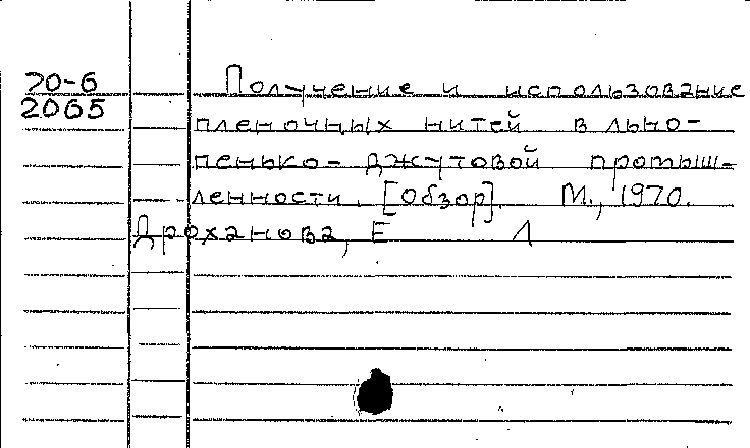 70-6 Получение и использование
2065 пленочных нитей в льно-
пенько-джутовой промыш-
ленности. [Обзор]. М., 1970.
Дроханова, Е Л